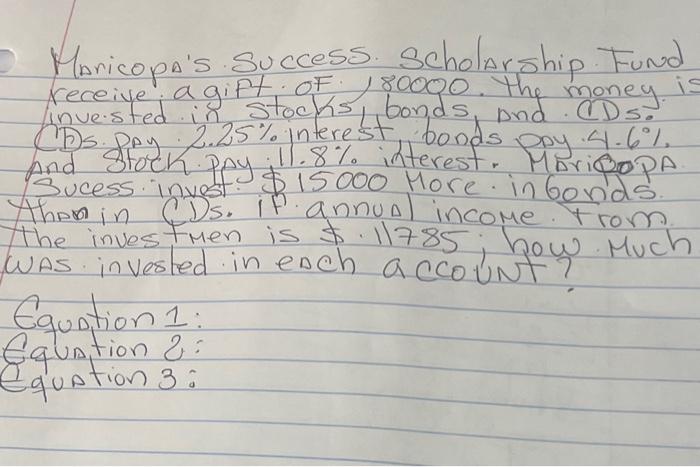 Maricopa's Success. Scholarship Fund
receive a gift of 180000. The money is
invested in stocks, bonds, and CDs.
CDs pay 2.25% interest bonds pay 4.6%
And Stock pay 11.8% interest. Maricopa
Sucess invest $15000 More in bonds
than in CDs. if annual income from
The investmen is $ 11785, how Much
WAS invested in each account?
Equation 1:
Equation 2:
Equation 3: